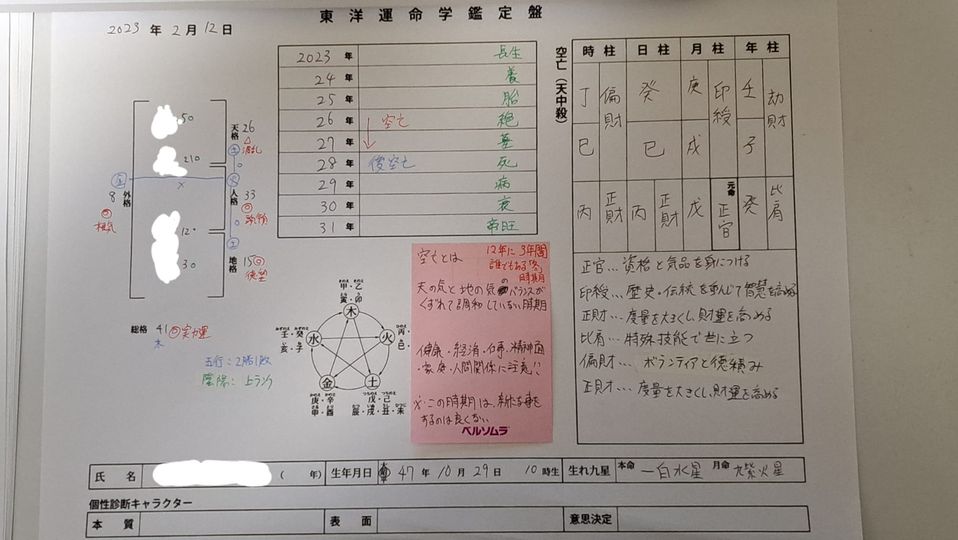 東洋運命学鑑定盤
2023年2月12日
2023年 長生
24年 養
25年 胎
26年 空亡 絶
27年 墓
28年 後空亡 死
29年 病
30年 衰
31年 帝旺
空亡(天中殺)
時柱 日柱 月柱 年柱
丁 偏財 癸 庚 印綬 壬 劫財
巳 巳 戌 子
丙 正財 丙 正財 戊 元命 正官 癸 比肩
50
210
12
30
天格 26
土
人格 33
火
地格 15
土
外格 8
金
総格 41
木
五行:2勝1敗
陰陽:上ランク
甲・乙
寅・卯
木
火
土
金
水
壬・癸
亥・子
丙・
巳・
戊・己
辰・戌・丑・未
庚・辛
申・酉
空亡とは 12年に3年間
誰でもある「冬」
時期
天の気と地の気のバランスが
くずれて調和していない時期
健康・経済・仕事・精神面
・家庭・人間関係に注意!!
※この時期は、新たな事を
するのは良くない
ベルソムラ
正官…資格と気品を身につける
印綬…歴史・伝統を重んじて智慧を高める
正財…度量を大きくし、財運を高める
比肩…特殊技能で世に立つ
偏財…ボランティアと徳積み
正財…度量を大きくし、財運を高める
氏名 ( 年) 生年月日 47年10月29日 10時生 生れ九星 本命 一白水星 月命 九紫火星
個性診断キャラクター
本質 表面 意思決定